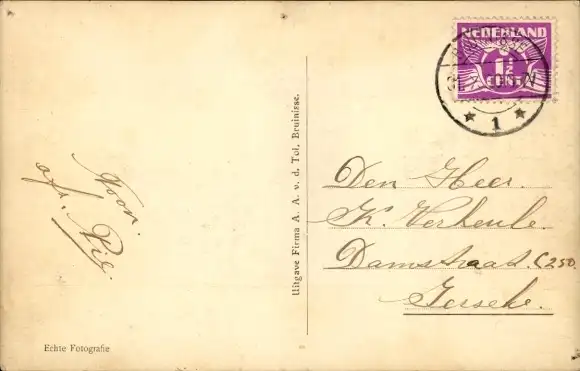 NEDERLAND
1½
CENT
1
Den Heer.
K. Verheule.
Damstraat. C250.
Ierseke.
Uitgave Firma A. A. v. d. Tol, Bruinisse.
Noon.
afz. Pie.
Echte Fotografie